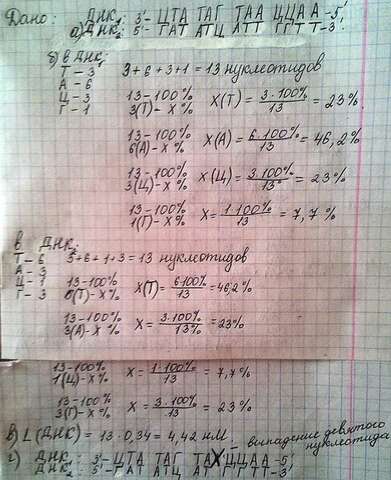 Дано: ДНК₁: 3'- ЦТА ТАГ ТАА ЦЦА А -5'
а) ДНК₂: 5'- ГАТ АТЦ АТТ ГГТ Т-3'
б) в ДНК₁
Т - 3 3+6+3+1 = 13 нуклеотидов
А - 6
Ц - 3
Г - 1
13 - 100%
3(Т) - X% X(Т) = 3·100% / 13 = 23%
13 - 100%
6(А) - X% X(А) = 6·100% / 13 = 46,2%
13 - 100%
3(Ц) - X% X(Ц) = 3·100% / 13 = 23%
13 - 100%
1(Г) - X% X = 1·100% / 13 = 7,7%
в ДНК₂
Т - 6 3+6+1+3 = 13 нуклеотидов
А - 3
Ц - 1
Г - 3
13 - 100%
6(Т) - X% X(Т) = 6·100% / 13 = 46,2%
13 - 100%
3(А) - X% X = 3·100% / 13% = 23%
13 - 100%
1(Ц) - X% X = 1·100% / 13 = 7,7%
13 - 100%
3(Г) - X% X = 3·100% / 13 = 23%
в) L (ДНК) = 13·0,34 = 4,42 нМ
- выпадение девятого нуклеотида
г) ДНК₁: 3'- ЦТА ТАГ ТАХЦЦАА -5'
ДНК₂: 5'- ГАТ АТЦ АТ ГГТТ -3'